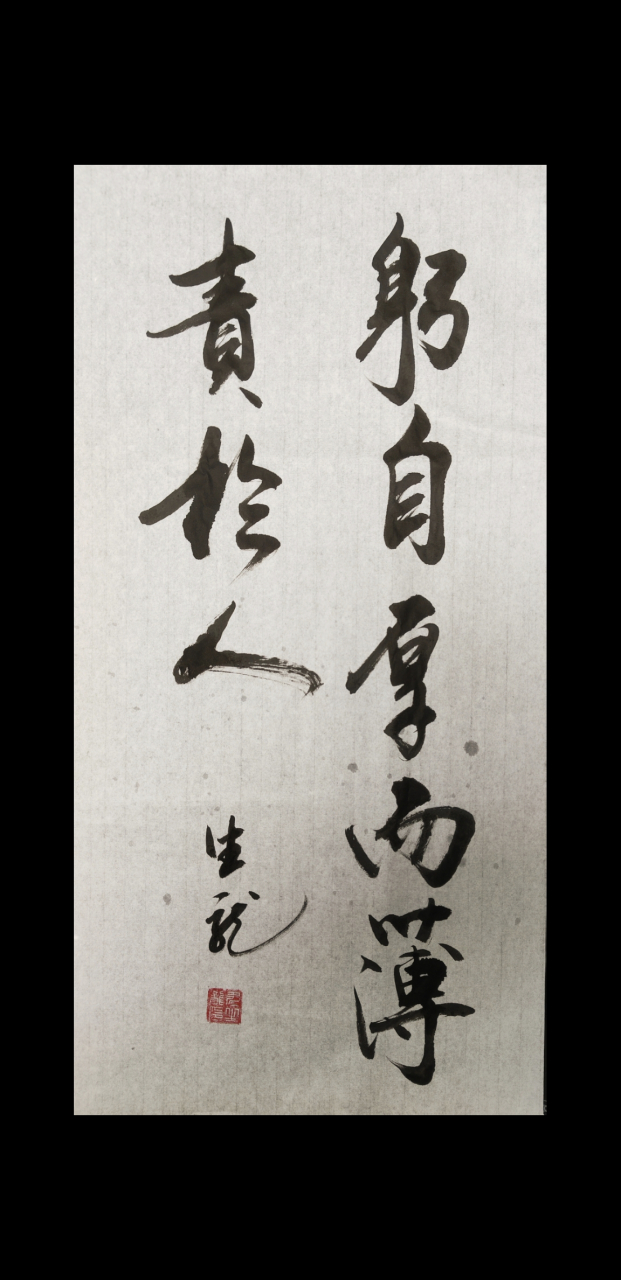 躬自厚而薄
責於人
生龍